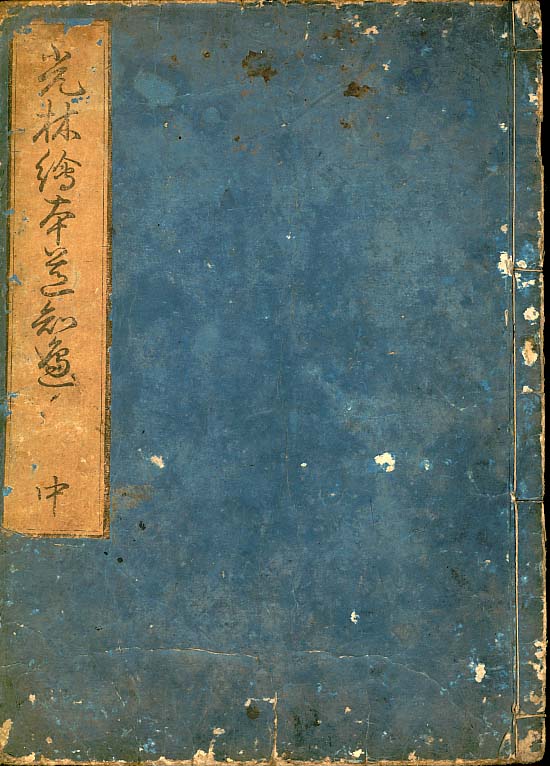 光林繪本道知邊 中